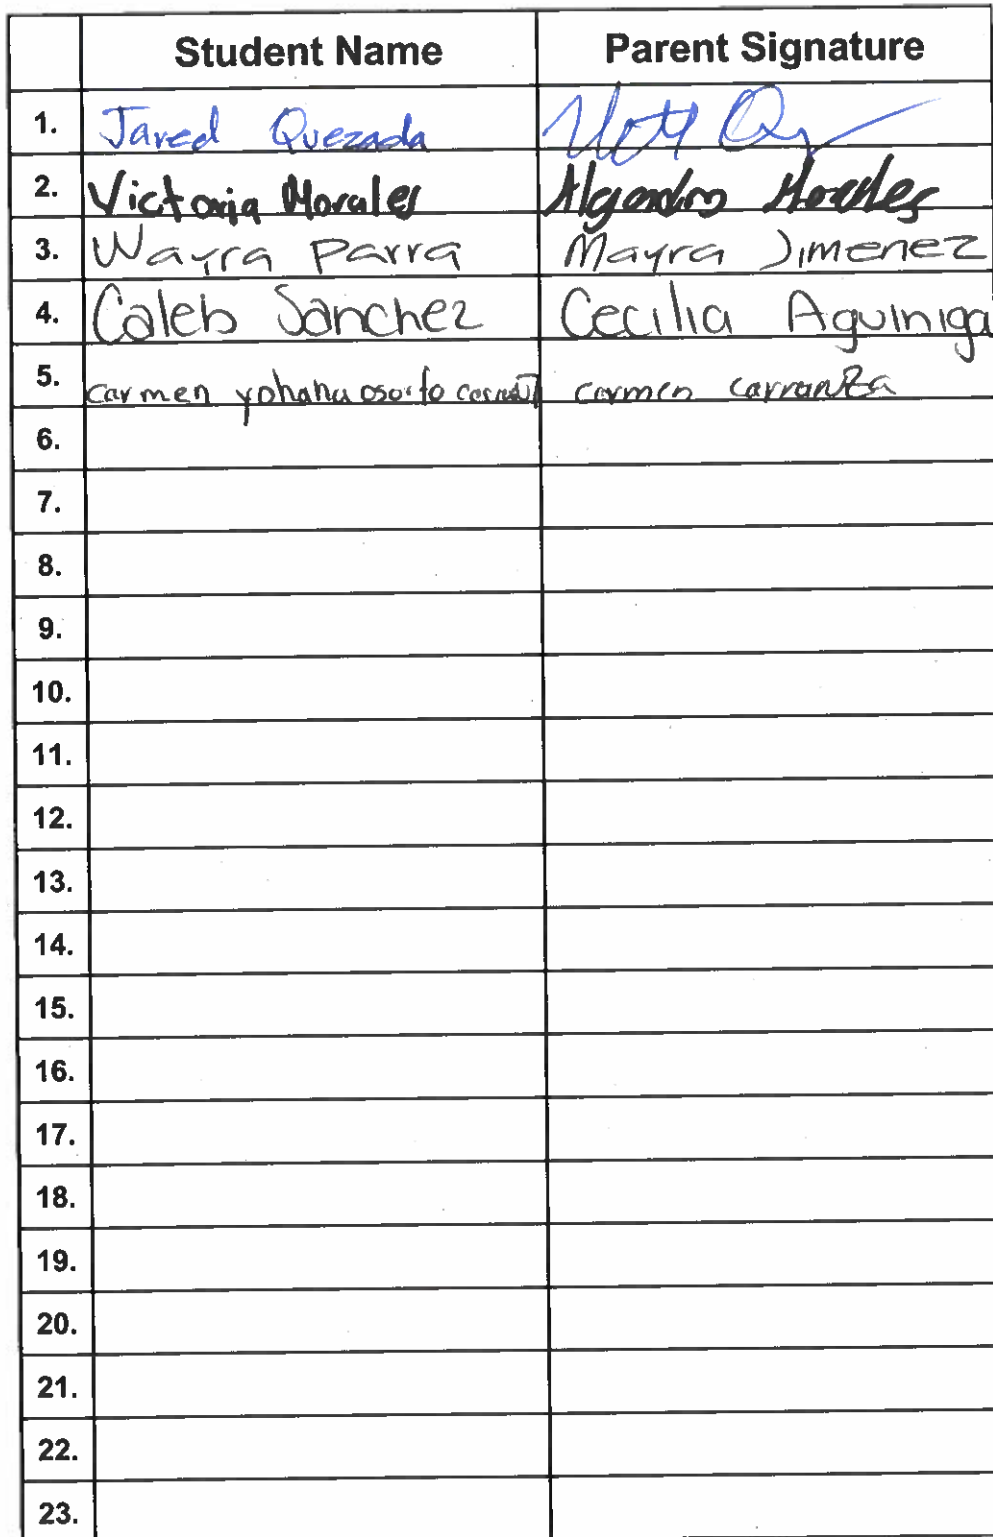 Student Name Parent Signature
1. Jared Quezada
2. Victoria Morales Alejandro Morales
3. Wayra Parra Mayra Jimenez
4. Caleb Sanchez Cecilia Aguiniga
5. carmen yohana osorto carmen carranza
6.
7.
8.
9.
10.
11.
12.
13.
14.
15.
16.
17.
18.
19.
20.
21.
22.
23.